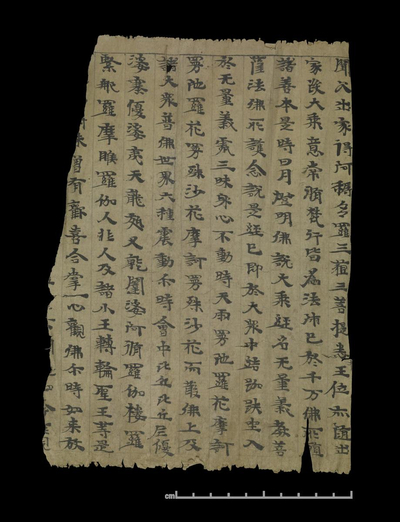 聞父出家得阿耨多羅三藐三菩提悉王位亦随出
家發大乘意常脩梵行皆為法師已於千万佛所殖
諸善本是時日月燈明佛說大乘經名无量義教菩
薩法佛所護念說是經已即於大衆中結跏趺坐入
於无量義處三昧身心不動時天雨曼陁羅花摩訶
曼陁羅花曼殊沙花摩訶曼殊沙花而散佛上及
諸大衆普佛世界六種震動尒時會中比丘比丘尼優
婆塞優婆夷天龍夜叉乾闥婆阿脩羅伽樓羅
緊那羅摩睺羅伽人非人及諸小王轉輪聖王等是
未曾有歡喜合掌一心觀佛尒時如來放
cm